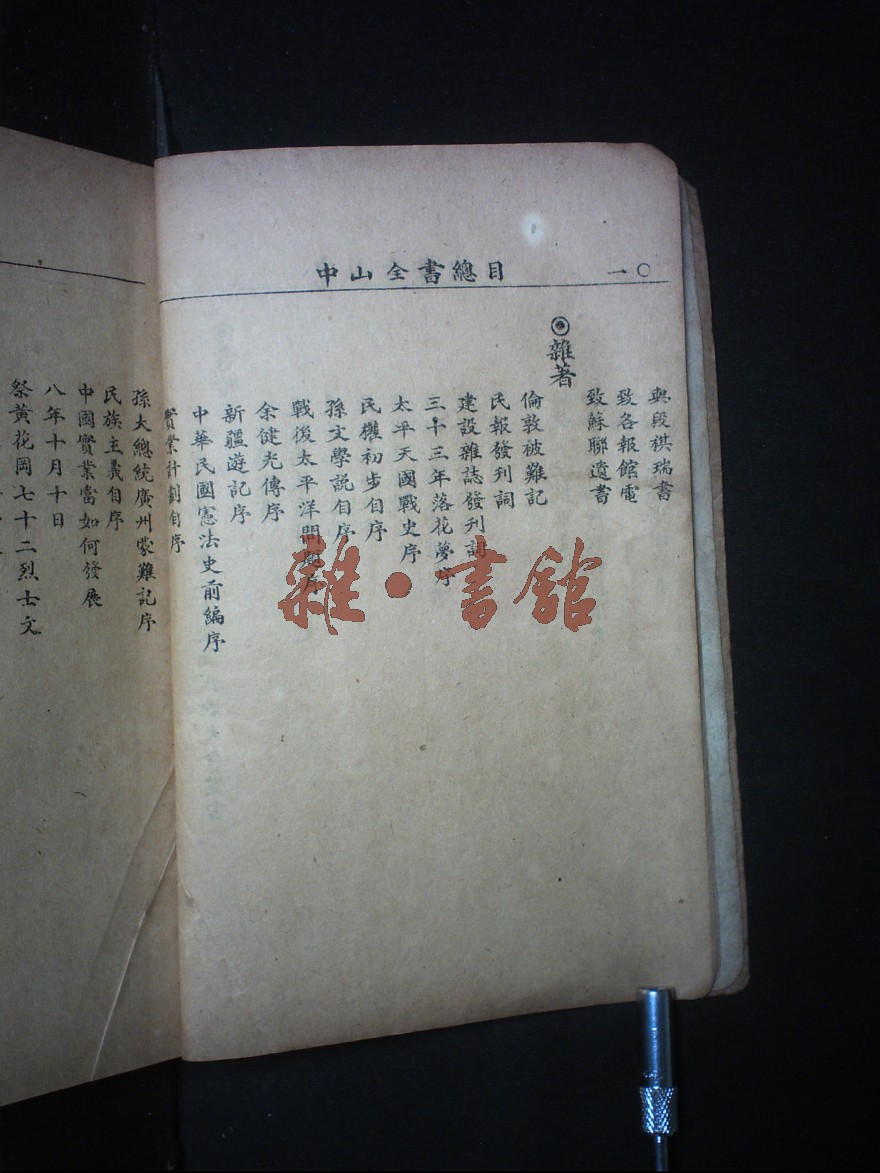 中山全書總目
一〇
與段祺瑞書
致各報館電
致蘇聯遺書
◎雜著
倫敦被難記
民報發刊詞
建設雜誌發刊詞
三十三年落花夢序
太平天國戰史序
民權初步自序
孫文學說自序
戰後太平洋問題序
余健光傳序
新疆遊記序
中華民國憲法史前編序
實業計劃自序
孫大總統廣州蒙難記序
民族主義自序
中國實業當如何發展
八年十月十日
祭黃花岡七十二烈士文
雜·書館